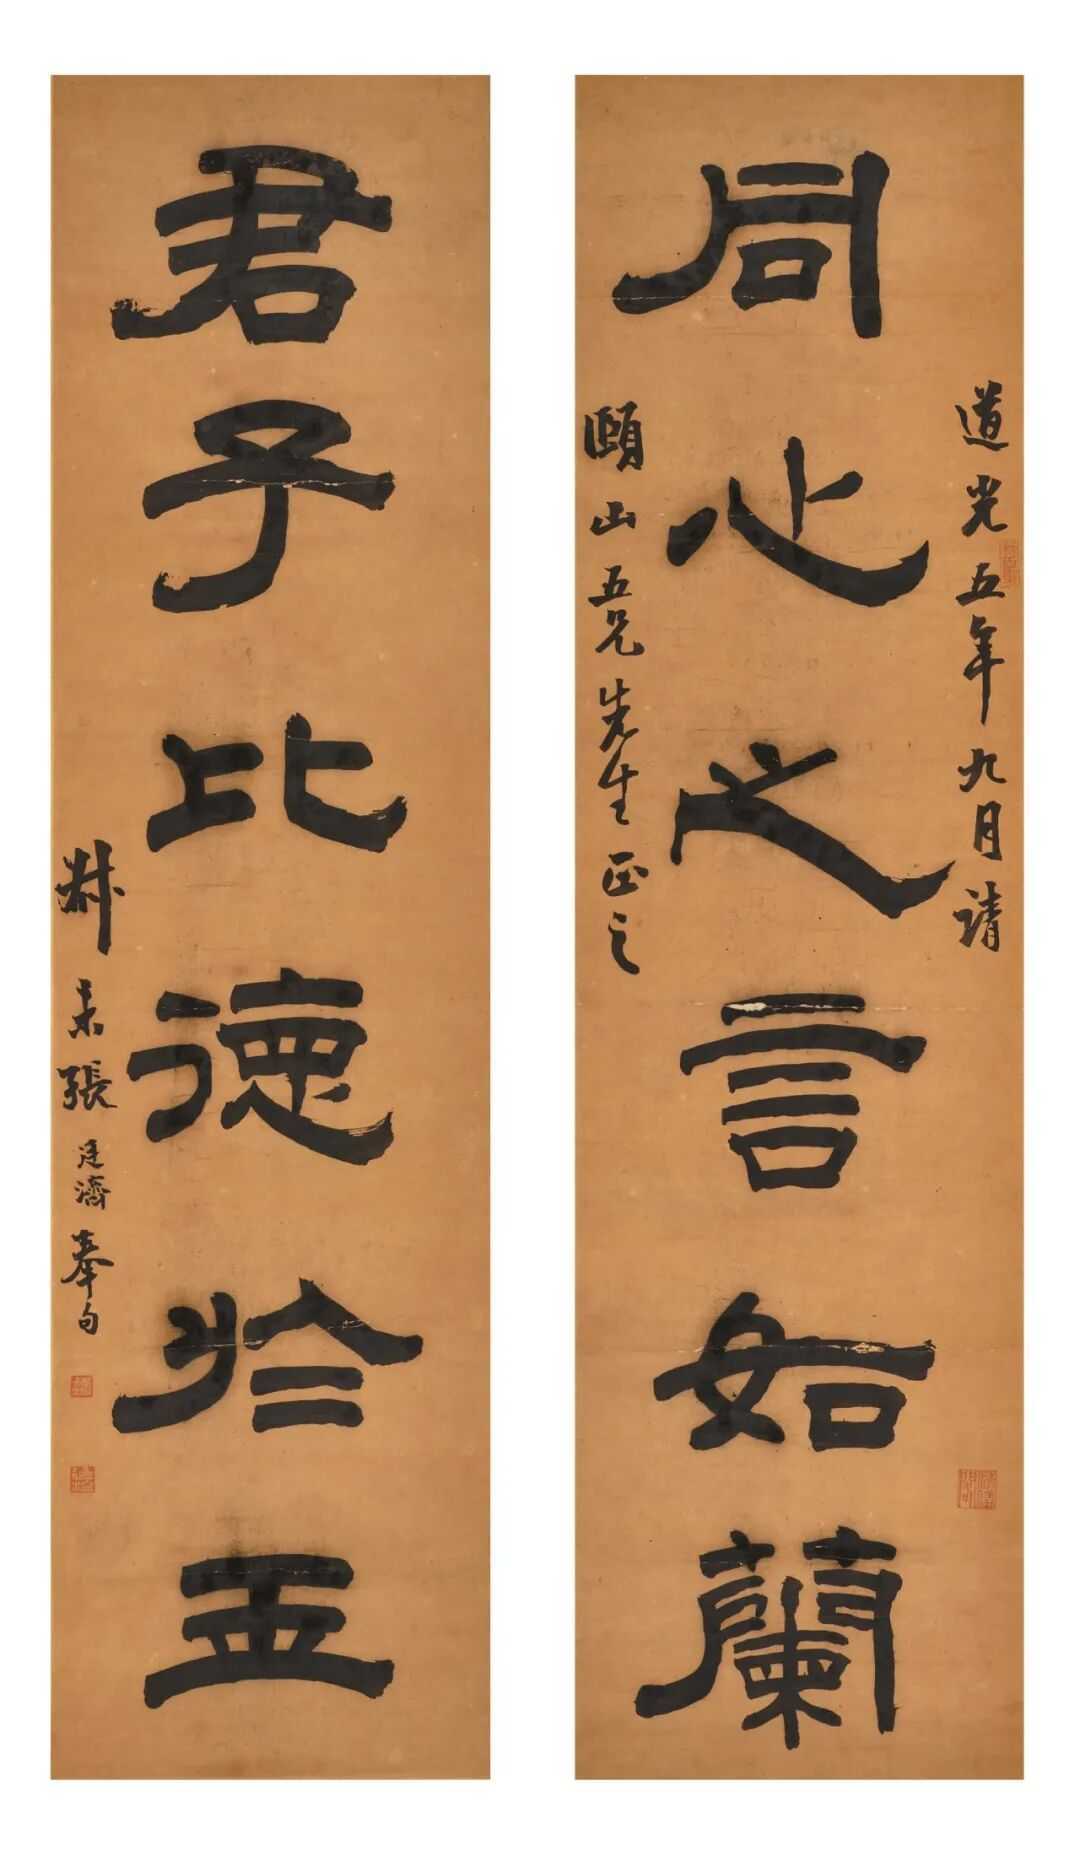 同心之言如蘭
道光五年九月請
頤山五兄先生正之
君子比德於玉
叔未張廷濟奉句